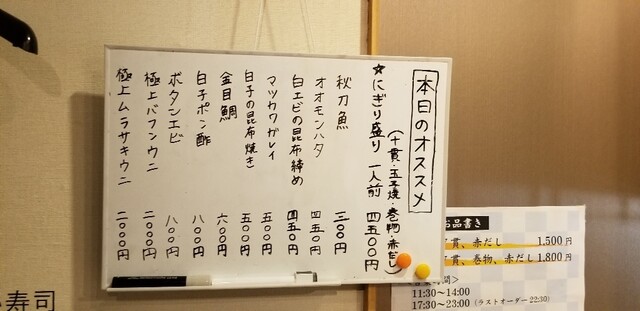 本日のオススメ
☆にぎり盛り 一人前 四五〇〇円
(十貫・玉子焼・巻物・赤だし)
秋刀魚 三〇〇円
オオモンハタ 四五〇円
白エビの昆布締め 四五〇円
マツカワガレイ 五〇〇円
白子の昆布焼き 五〇〇円
金目鯛 六〇〇円
白子ポン酢 八〇〇円
ボタンエビ 八〇〇円
極上バフンウニ 二〇〇〇円
極上ムラサキウニ 二〇〇〇円
品書き
貫、赤だし 1,500円
貫、巻物、赤だし 1,800円
時間>
11:30～14:00
17:30～23:00 (ラストオーダー 22:30)
寿司